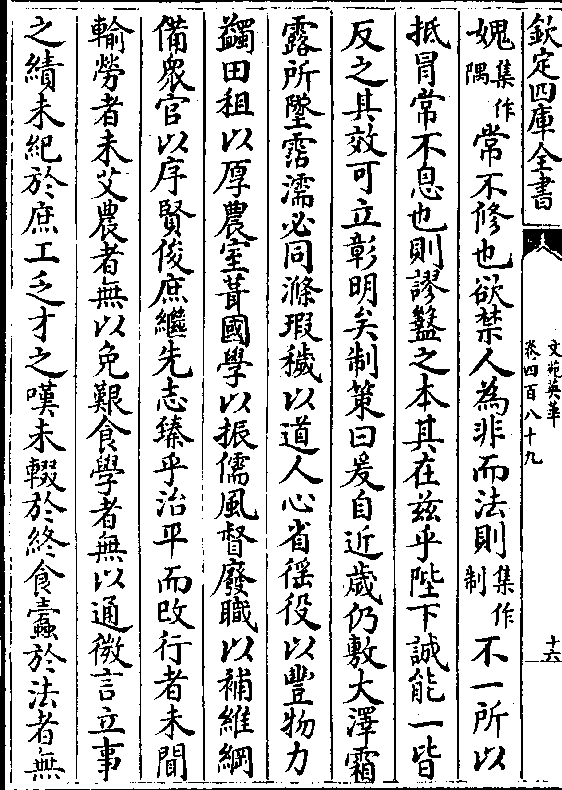 欽定四庫全書
文苑英華
卷四百八十九
十六
媿集作隅常不修也欲禁人為非而法則集作制不一所以
抵冒常不息也則謬盭之本其在兹乎陛下誠能一皆
反之其效可立彰明矣制策曰爰自近歳仍敷大澤霜
露所墜霑濡必同滌瑕穢以道人心省徭役以豐物力
蠲田租以厚農室葺國學以振儒風督廢職以補維綱
備衆官以序賢俊庶繼先志臻乎治平而改行者未聞
輸勞者未艾農者無以免艱食學者無以通微言立事
之績未紀於庶工乏才之嘆未輟於終食蠹於法者無